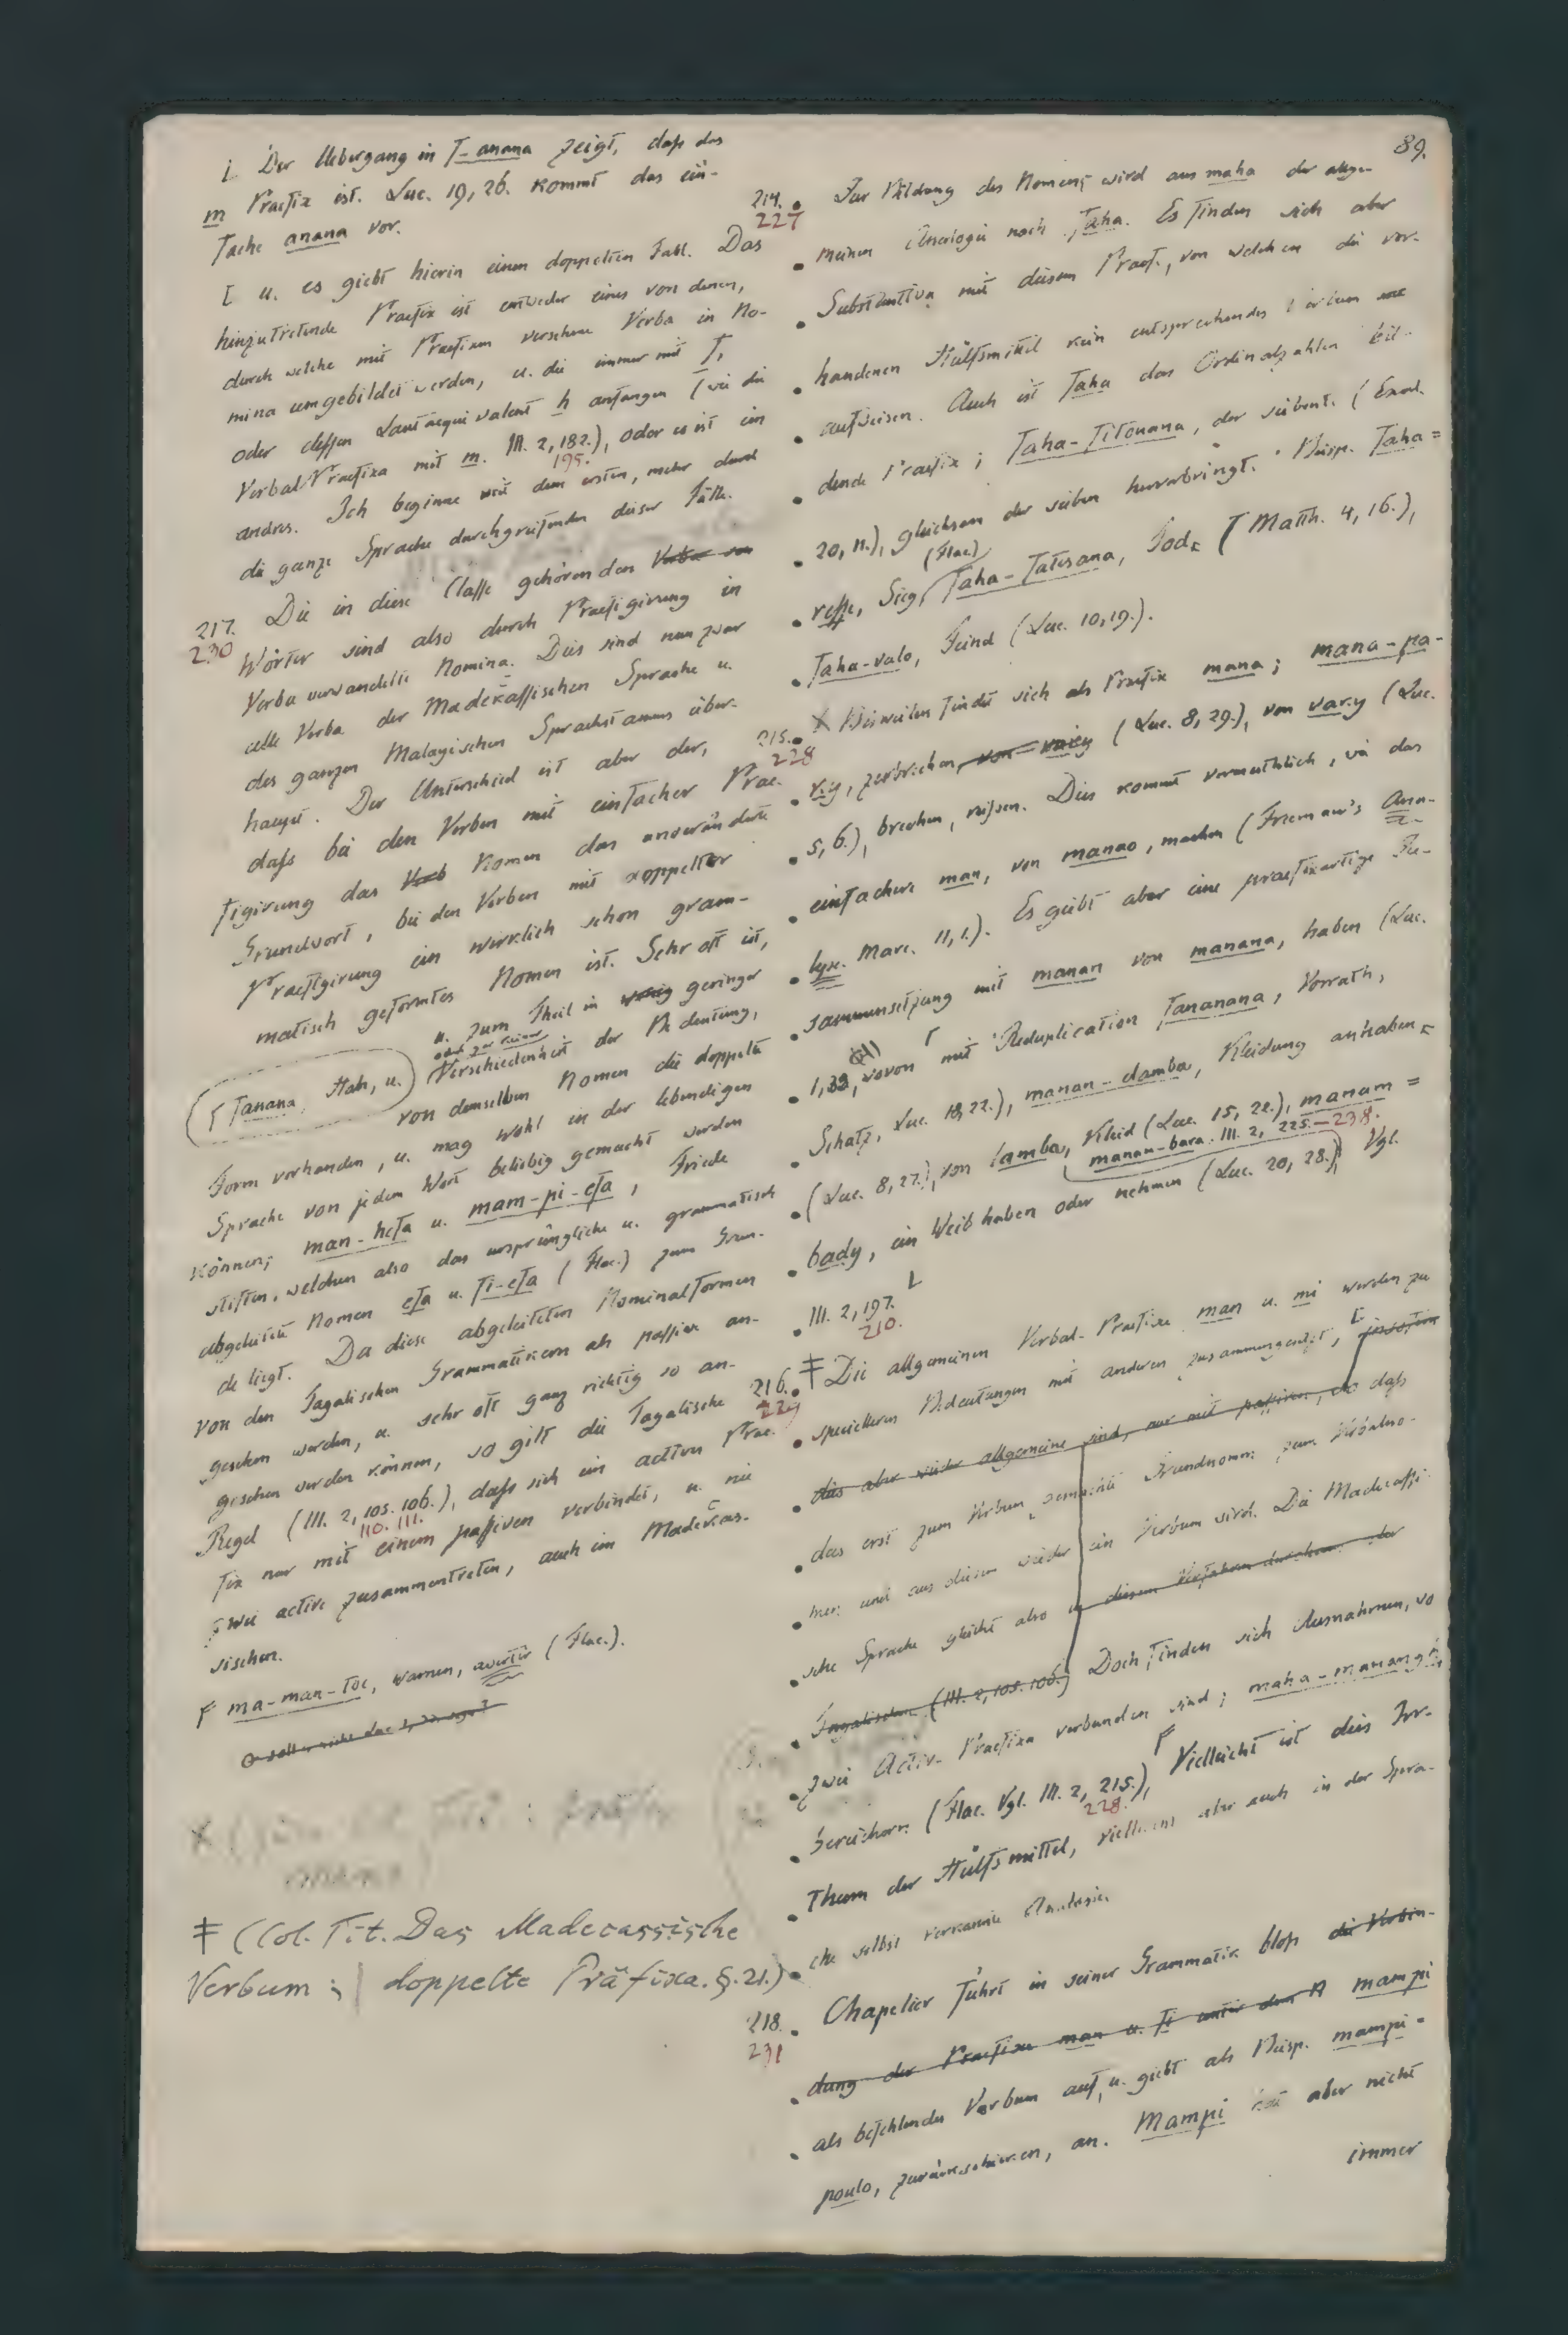 89.
⌊ Der Uebergang in f-anana zeigt, daß das
m Praefix ist. Luc. 19, 26. kommt das ein-
fache anana vor.
[ u. es giebt hierin einen doppelten Fall. Das
hinzutretende Praefix ist entweder eines von denen,
durch welche mit Praefixen versehene Verba in No-
mina umgebildet werden, u. die immer mit f,
oder dessen Lautaequivalent h anfangen (wie die
Verbal Praefixa mit m. III. 2, 182.), oder es ist ein
195.
andres. Ich beginne mit dem ersten, mehr durch
die ganze Sprache durchgreifenden dieser Fälle.
217. Die in diese Classe gehörenden Verba
230
Wörter sind also durch Praefigirung in
Verba verwandelte Nomina. Dies sind nun zwar
alle Verba der Madekassischen Sprache u.
des ganzen Malayischen Sprachstamms über-
haupt. Der Unterschied ist aber der,
daß bei den Verben mit einfacher Prae-
figirung das Verb Nomen das unveränderte
Grundwort, bei den Verben mit doppelter
Praefigirung ein wirklich schon gram-
matisch geformtes Nomen ist. Sehr oft ist,
u. zum Theil in wenig geringer
oder gar keiner
(⌈ fanana, Hab, u.) Verschiedenheit der Bedeutung,
von demselben Nomen die doppelte
Form vorhanden, u. mag wohl in der lebendigen
Sprache von jedem Wort beliebig gemacht werden
können; man-hefa u. mam-pi-efa, Friede
stiften, welchen also das ursprüngliche u. grammatisch
abgeleitete Nomen efa u. fi-efa (Flac.) zum Grun-
de liegt. Da diese abgeleiteten Nominalformen
von den Tagalischen Grammatikern als passive an-
gesehen werden, u. sehr oft ganz richtig so an-
gesehen werden können, so gilt die Tagalische
Regel (III. 2, 105. 106.), daß sich ein active Prae-
110. 111.
fix nur mit einem passiven verbindet, u. nie
zwei active zusammentreten, auch im Madecas-
sischen.
⌈ ma-man-toc, warnen, avertir (Flac.).
‡ (Col. Tit. Das Madecassische
Verbum; | doppelte Präfixa. §. 21.)
214. Zur Bildung des Nomens wird aus maha der allge-
227
meinen Analogie nach faha. Es finden sich aber
Substantiva mit diesem Praef., von welchen die vor-
handenen Hülfsmittel kein entsprechendes Verbum
aufweisen. Auch ist faha das Ordinalzahlen bil-
dende Praefix; faha-fitouana, der siebente (Exod.
20, 11.), gleichsam der sieben hervorbringt. Beisp. faha=
(Flac)
resse, Sieg, faha-fatesana, Tod, (Matth. 4, 16.),
faha-valo, Feind (Luc. 10, 19.).
215. X Bisweilen findet sich als Praefix mana; mana-pa-
228
r.y, zerbrechen, (Luc. 8, 29.), von var.y (Luc.
5, 6.), brechen, reißen. Dies kommt vermuthlich, wie das
einfachere man, von manao, machen (Freeman's Ana-
lyse. Marc. 11, 1.). Es giebt aber eine praefixartige Zu-
sammensetzung mit manan von manana, haben (Luc.
1, 33, wovon mit Reduplication fananana, Vorrath,
Schatz, Luc. 18, 22.), manan-damba, Kleidung anhaben
(Luc. 8, 27.), von lamba, Kleid (Luc. 15, 22.), manam=
manan-bara. III. 2, 225.—238.
bady, ein Weib haben oder nehmen (Luc. 20, 28.) Vgl.
III. 2, 197.
210.
216. ‡ Die allgemeinen Verbal-Praefixe man u. mi werden zu
229
specielleren Bedeutungen mit anderen zusammengesetzt, [ insofern
dies aber wieder allgemeine sind, nur mit passiven, so daß
das erst zum Verbum gemachte Grundnomen zum Verbalno-
men und aus diesem wieder ein Verbum wird. Die Madecassi-
sche Sprache gleicht also in diesem Verfahren durchaus der
Tagalischen (III. 2, 105. 106.) Doch finden sich Ausnahmen, wo
zwei Activ-Praefixa verbunden sind; maha-manang.
bereichern (Flac. Vgl. III. 2, 215.), ⌈ Vielleicht ist dies Irr-
228.
thum der Hülfsmittel, vielleicht aber auch in der Spra-
che selbst verkannte Analogie.
218. Chapelier führt in seiner Grammatik bloß die Verbin-
231
dung der Praefixe man u. fi unter dem mampi
als befehlendes Verbum auf, u. giebt als Beisp. mampi-
poulo, zurückschicken, an. Mampi hat aber nicht
immer